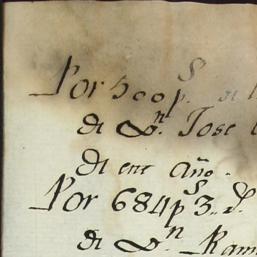 Por 500 p.s de l
de D.n Jose
de ene año.
Por 684 p.s 3..
de D.n Ram